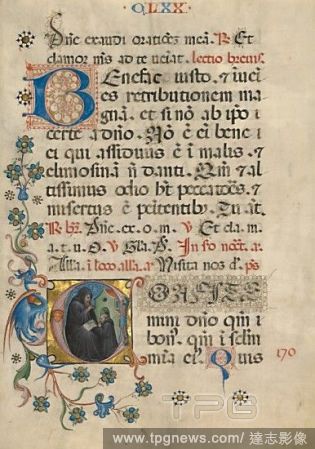 · CLXX ·
Dñe exaudi orationẽ meã. R Et
clamor mς ad te ueniat. lectio breuis.
BEnefac iusto, et inueni
es retributionem ma
gnã. et si nõ ab ipso
certe a dño. Nõ ẽ ei bene
ei qui assiduus ẽ ĩ malis. et
elimosinã ñ danti. Qm̃ et al
tissimus odio ht peccatores. et
misertus ẽ penitentib. Tu aũt.
R br. Dñe. ex. o. m. V Et cla. m.
a. t. u. O. V Gla.
Alla. Nisita nos d. ps
COnfite
mini dño qm̃
bon. qm̃ ĩ sclm
mĩa ei. Quis
170
TPG
www.tpgnews.com/達志影像